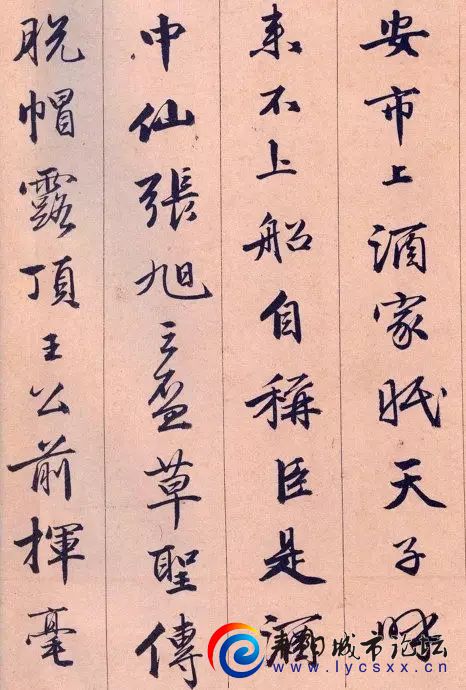 安市上酒家眠天子呼
来不上船自稱臣是酒
中仙張旭三盃草聖傳
脱帽露頂王公前揮毫
城市论坛
www.lycsxx.cn